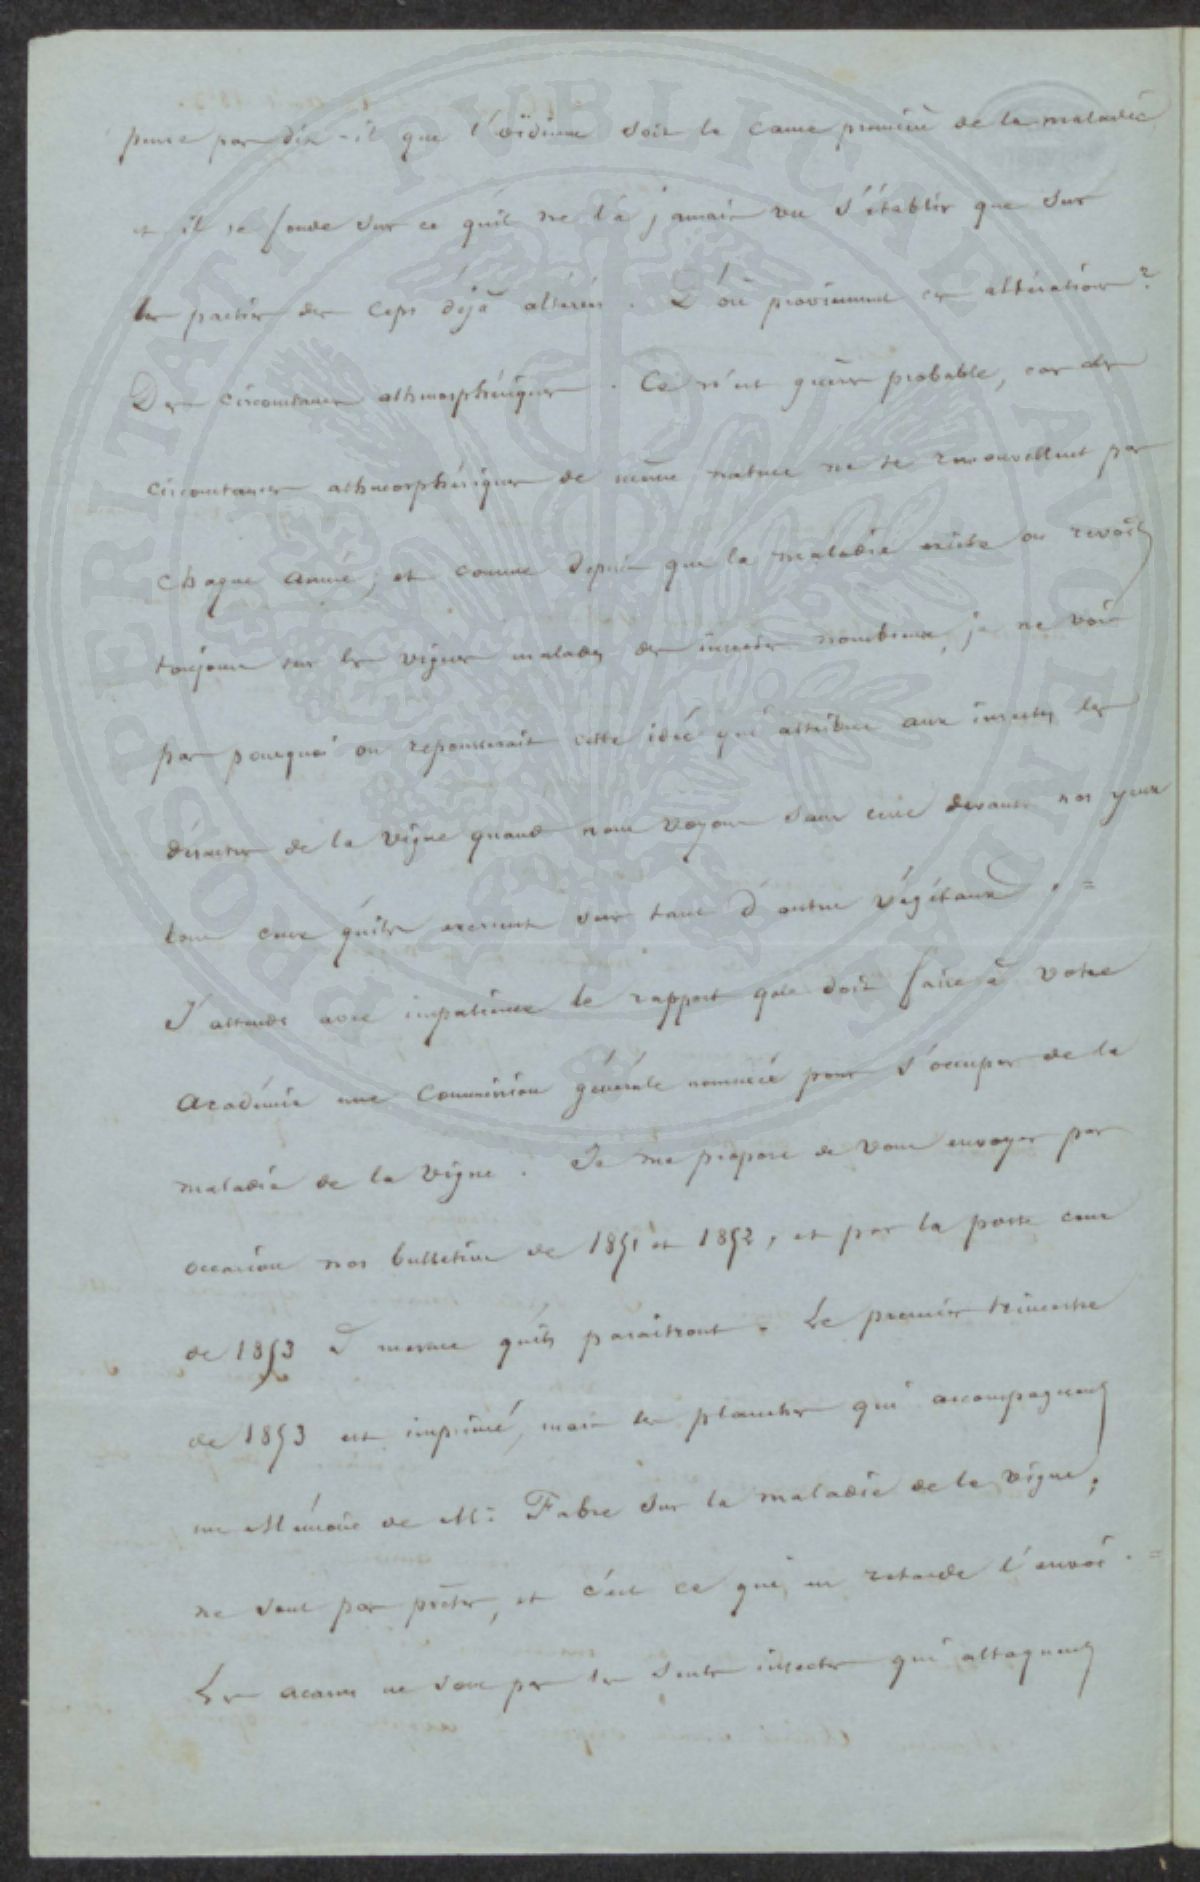 pense pas dit-il que l'oïdium soit la cause première de la maladie
et il se fonde sur ce qu'il ne l'a jamais vu s'établir que sur
les parties des ceps déjà altérées. D'où proviennent ces altérations?
Des circonstances athmosphériques. Ce n'est guère probable, car des
circonstances athmosphériques de même nature ne se renouvellent pas
chaque année; et comme depuis que la maladie existe on revoit
toujours sur les vignes malades des insectes nombreux, je ne vois
pas pourquoi on repousserait cette idée qui attribue aux insectes les
désastres de la vigne quand nous voyons sans cesse devant nos yeux
tous ceux qu'ils exercent sur tant d'autres végétaux. =
J'attends avec impatience le rapport que doit faire à votre
Académie une Commission générale nommée pour s'occuper de la
maladie de la vigne. Je me propose de vous envoyer par
occasion nos bulletins de 1851 et 1852, et par la poste ceux
de 1853 à mesure qu'ils paraitront. Le premier trimestre
de 1853 est imprimé, mais les planches qui accompagnent
un Mémoire de Mr Fabre sur la maladie de la vigne,
ne sont pas prêtes, et c'est ce qui en retarde l'envoi. =
Les acarus ne sont pas les seuls insectes qui attaquent
PROSPERITATI PVBLICAE AVGENDAE